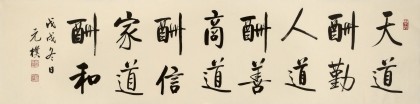 天道
酬勤
人道
酬善
商道
酬信
家道
酬和
戊戌冬日
元樸